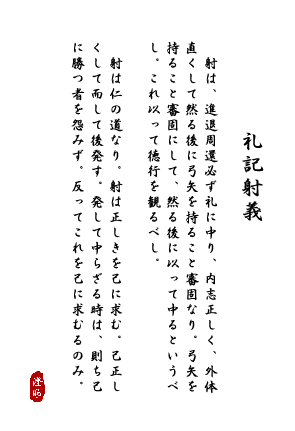 礼記射義
射は、進退周還必ず礼に中り、内志正しく、外体
直くして然る後に弓矢を持ること審固なり。弓矢を
持ること審固にして、然る後に以って中るというべ
し。これ以って徳行を観るべし。
射は仁の道なり。射は正しきを己に求む。己正し
くして而して後発す。発して中らざる時は、則ち己
に勝つ者を怨みず。反ってこれを己に求むるのみ。